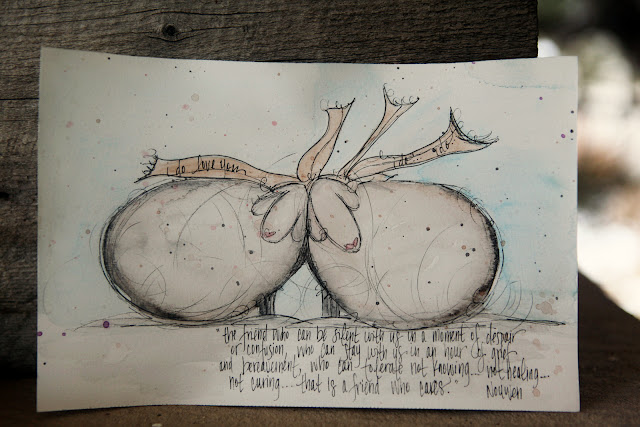 i do love you
i do
"the friend who can be silent with us in a moment of despair
or confusion, who can stay with us in an hour of grief
and bereavement, who can tolerate not knowing... not healing...
not curing.... that is a friend who cares."
Nouwen